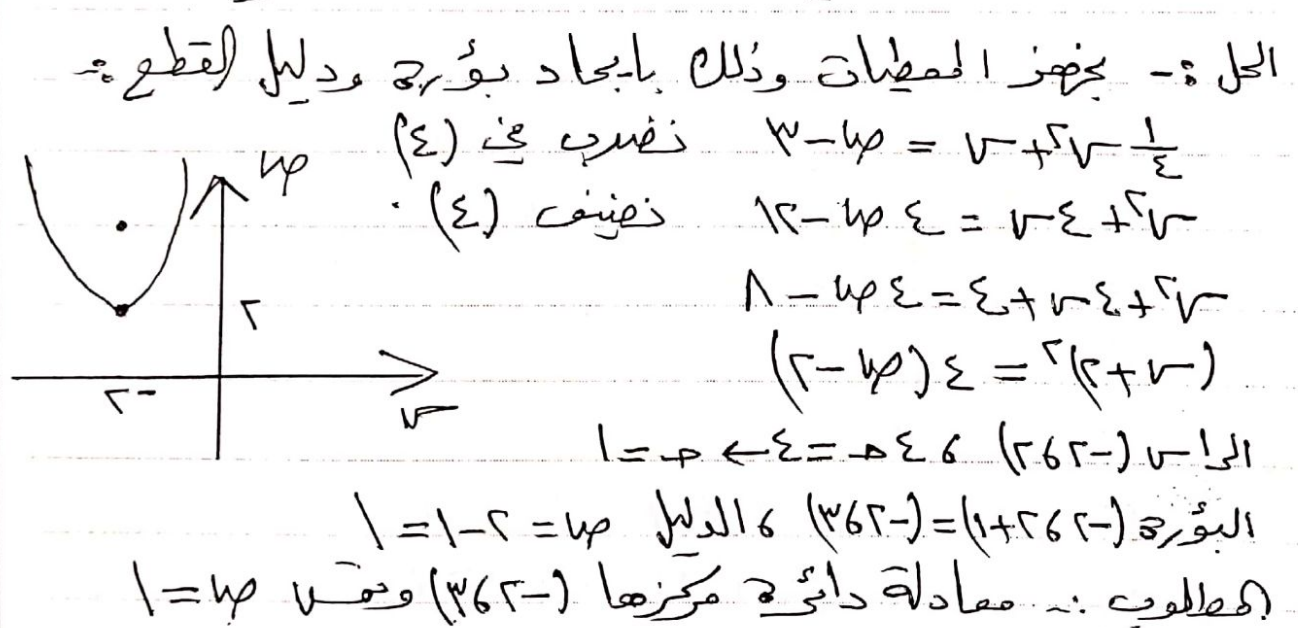 الحل :- نجهز المعطيات وذلك بإيجاد بؤرة ودليل القطع :-
١/٤ س٢ + س = ص - ٣ نضرب في (٤)
س٢ + ٤س = ٤ص - ١٢ نضيف (٤)
س٢ + ٤س + ٤ = ٤ص - ٨
(س + ٢)٢ = ٤(ص - ٢)
الرأس (-٢، ٢) ، ٤حـ = ٤ ← حـ = ١
البؤرة (-٢، ٢+١) = (-٢، ٣) ، الدليل ص = ٢ - ١ = ١
المطلوب :- معادلة دائرة مركزها (-٢، ٣) وتمس ص = ١
ص
٢
-٢
س